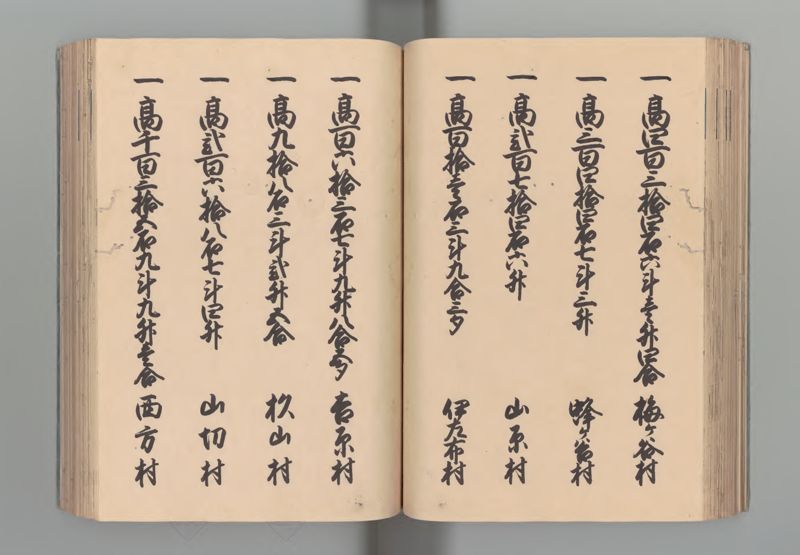 一 高四百三拾四石六斗壱升四合 梅ヶ谷村
一 高三百四拾四石七斗三升 蜂ヶ谷村
一 高弐百七拾四石六升 山原村
一 高百拾壱石三斗九合三夕 伊左布村
一 高百六拾三石七斗九升八合五夕 吉原村
一 高九拾八石三斗弐升五合 杦山村
一 高弐百六拾八石七斗四升 山切村
一 高千百三拾五石九斗九升壱合 西方村